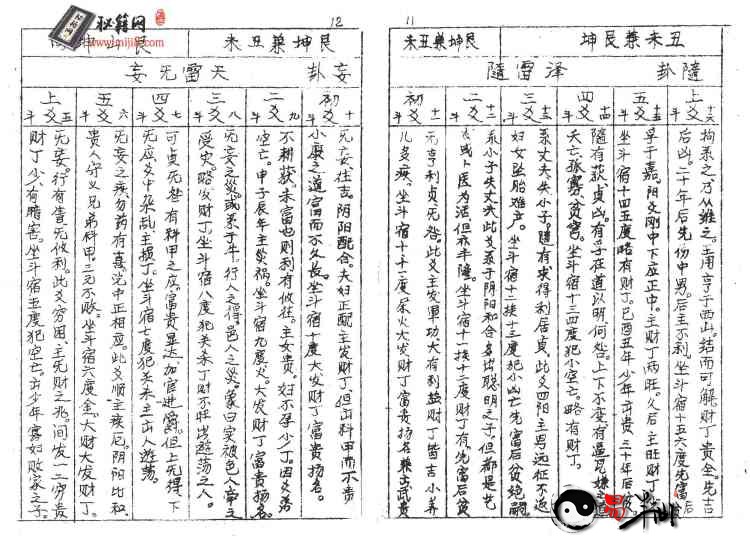 11
丑未兼艮坤
艮坤兼丑未
隨卦
泽雷隨
上爻 十六斗
拘系之乃从维之。王用亨于西山。结而可解。财丁贵全。先吉
后凶。二十年后先伤中男。后主不利。坐斗宿十五六度先富后
五爻 十五斗
孚于嘉。阴爻刚中下应正中。主财丁两旺。火后主旺财丁
坐斗宿十四五度略有财丁。巳酉丑年少年出贵三十年后
四爻 十四斗
隨有获。贞凶。有孚在道以明。何咎。上下不变。有逼
夭亡。孤寡贫穷。坐斗宿十三四度犯小空亡。略有财丁。
三爻 十三斗
系丈夫失小子。隨有求得利居贞。此爻四阳主男远征不返
妇女坠胎难产。坐斗宿十二接十三度犯小凶亡先富后贫绝嗣。
二爻 十二斗
系小子失丈夫。此爻系于阴阳和合多出聪明之子。但都是艺
人或卜医为活但亦丰隆。坐斗宿十一接十二度财丁有先富后贫
初爻 十一斗
元亨利贞无咎。此爻主发軍功大有利益财丁皆吉小美
儿多疾。坐斗宿十十一度水火大发财丁富贵扬名兼出武贵
12
艮坤兼丑未
妄卦
天雷无妄
初爻 十斗
无妄往吉。阴阳配合。夫妇正配主发财丁。但出科甲而不贵
小康之道富而不久长。坐斗宿十度大发财丁富贵扬名。
二爻 九斗
不耕获。未富也则利有攸往。主女贵。妇不孕少丁。因爻
空亡。甲子辰年主災祸。坐斗宿九度火。大发财丁富贵扬名。
三爻 八斗
无妄之災。或系于牛。行人之得。邑人之災。象曰实被邑人
受灾。略发财丁。坐斗宿八度犯关杀丁财不旺出游荡之人。
四爻 七斗
可贞无咎有科甲之应。富贵显达。加官进爵。但上无得。下
无应爻中杂乱主损丁。坐斗宿七度犯关杀主出人游荡。
五爻 六斗
无妄之疾。勿药有喜。此中正相应。此爻顺主疾厄。阴阳比和。
贵人守义兄弟科甲三元不败。坐斗宿六度金。大财大发财丁。
上爻 五斗
无妄。行有眚无攸利。此爻穷困。主先财之兆。间发一二穷贵
财丁少有暗害。坐斗宿五度犯空亡出少年寡妇败家之子。
秘籍网
www.miji8.com